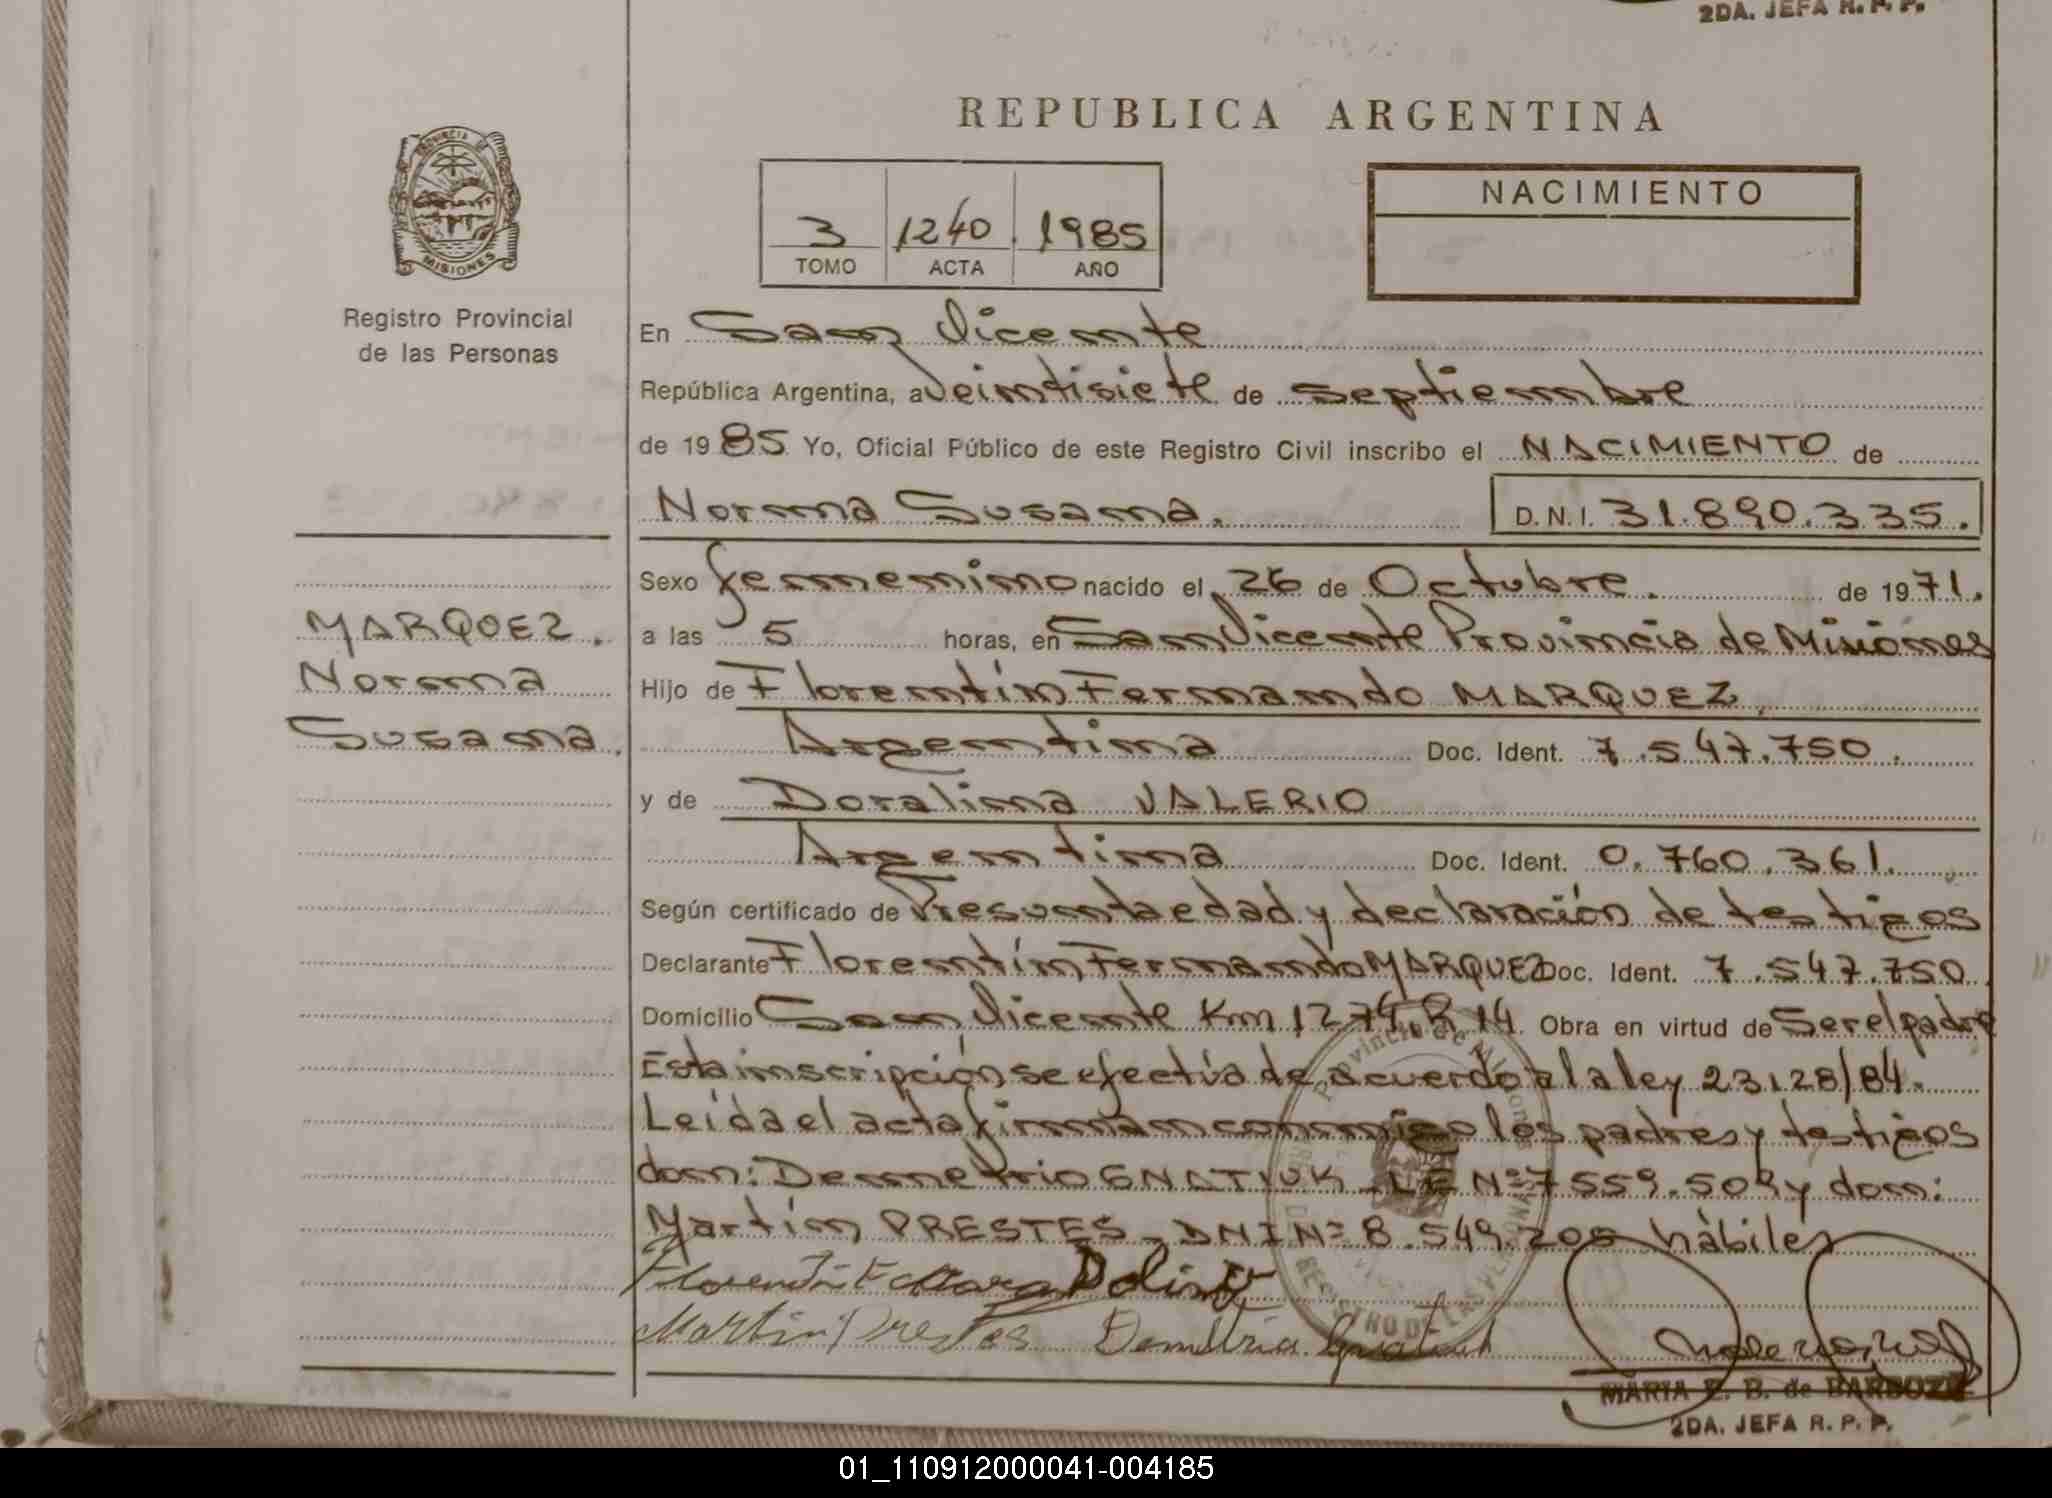 2DA. JEFA R. P. P.
REPUBLICA ARGENTINA
PROVINCIA DE
MISIONES
Registro Provincial
de las Personas
3 1240 1985
TOMO ACTA AÑO
NACIMIENTO
En San Vicente
República Argentina, a Veintisiete de septiembre
de 1985 Yo, Oficial Público de este Registro Civil inscribo el NACIMIENTO de
Norma Susana. D.N.I. 31.890.335.
Sexo femenino nacido el 26 de Octubre. de 1971.
MARQUEZ.
Norma
Susana.
a las 5 horas, en San Vicente Provincia de Misiones
Hijo de Florentín Fernando MARQUEZ.
Argentina Doc. Ident. 7.547.750.
y de Doralina VALERIO
Argentina Doc. Ident. 0.760.361.
Según certificado de Presunta edad y declaración de testigos
Declarante Florentín Fernando MARQUEZ Doc. Ident. 7.547.750
Domicilio San Vicente Km 1274 R 14 Obra en virtud de Ser el padre
Esta inscripción se efectúa de acuerdo a la ley 23128/84.
Leída el acta firman conmigo los padres y testigos
don: Demetrio GNATIUK LE Nº 7559.509 y don:
Martín PRESTES - DNI Nº 8.549.205 hábiles
Martin Prestes
MARIA E. B. de BARBOZA
2DA. JEFA R. P. P.
01_110912000041-004185